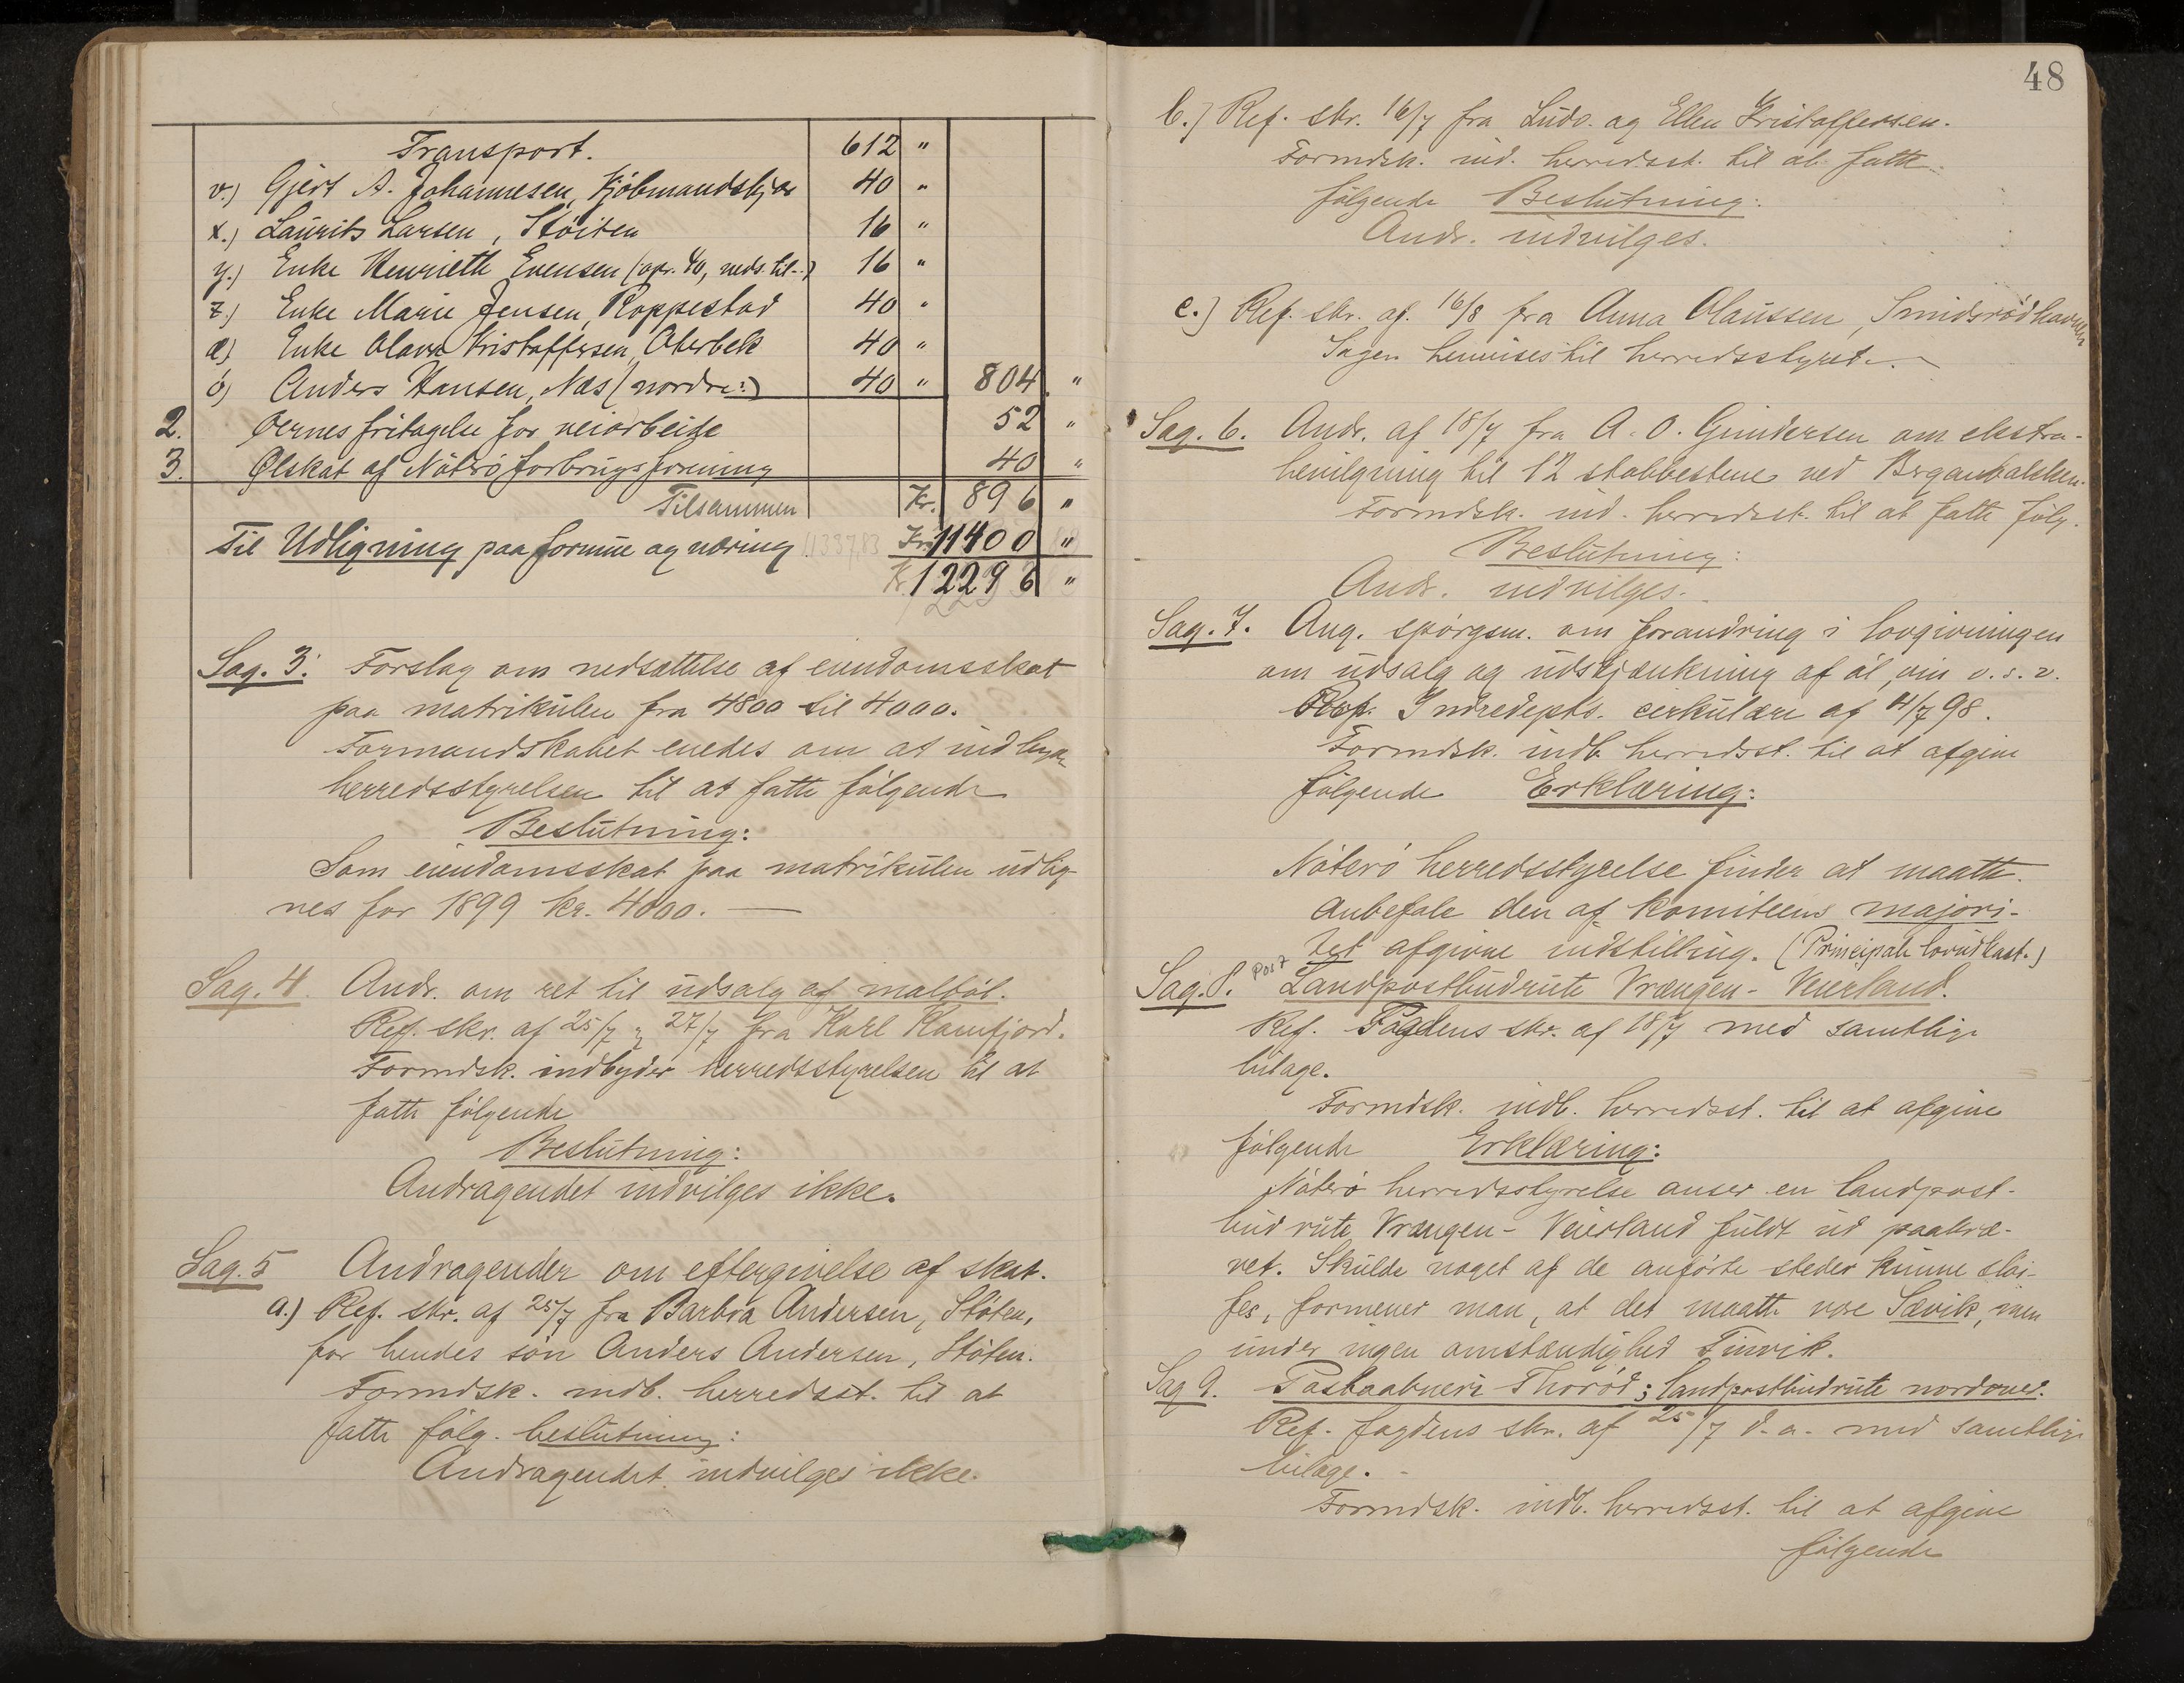 Transport. 612 "
v.) Gjert A. Johannesen, Kjöbmandskjær 40 "
x.) Laurits Larsen, Stöiten 16 "
y.) Enke Henriette Evensen (opr. 40, neds. til..) 16 "
z.) Enke Marie Jensen, Roppestad 40 "
æ) Enke Olava Kristoffersen, Oterbek 40 "
ö) Anders Hansen, Næs (nordre:) 40 " 804 "
2. Øernes fritagelse for veiarbeide 52 "
3. Ølskat af Nöterö forbrugsforening 40 "
Tilsammen Kr. 896 "
Til Udligning paa formue og næring 11337,83 Kr. 11400 "
Kr. 12296 "
Sag. 3. Forslag om nedsættelse af eiendomsskat
paa matrikulen fra 4800 til 4000.
Formandskabet enedes om at indbyde
herredsstyrelsen til at fatte fölgende
Beslutning:
Som eiendomsskat paa matrikulen udlig-
nes for 1899 kr. 4000. —
Sag. 4. Andr. om ret til udsalg af maltöl.
Ref. skr. af 25/7 & 27/7 fra Karl Kamfjord.
Formdsk. indbyder herredsstyrelsen til at
fatte fölgende
Beslutning:
Andragendet indvilges ikke.
Sag. 5 Andragender om eftergivelse af skat.
a.) Ref. skr. af 25/7 fra Barbra Andersen, Stöten,
for hendes sön Anders Andersen, Stöten.
Formdsk. indb. herredsst. til at
fatte fölg. beslutning:
Andragendet indvilges ikke.
48
b.) Ref. skr. 16/7 fra Ludv. og Ellen Kristoffersen.
Formdsk. ind. herredsst. til at fatte
fölgende Beslutning:
Andr. indvilges.
c.) Ref. skr. af. 16/8 fra Anna Olaussen, Smidsrödhavnen
Sagen henvises til herredsstyret.
Sag. 6. Andr. af 18/7 fra A. O. Gundersen om ekstra-
bevilgning til 12 stabbestene ved Berganbakken.
Formdsk. ind. herredsst. til at fatte fölg.
Beslutning:
Andr. indvilges.
Sag. 7. Ang. spörgsm. om forandring i lovgivningen
om udsalg og udskjænkning af öl, vin o.s.v.
Ref. Indredepts. cirkulære af 11/7 98.
Formdsk. indb. herredsst. til at afgive
fölgende Erklæring:
Nöterö herredsstyrelse finder at maatte
anbefale den af komiteens majori-
tet afgivne indstilling. (Principale lovudkast.)
Sag. 8. Post Landpostbudrute Vrængen - Veierland.
Ref. Fogdens skr. af 18/7 med samtlige
bilage.
Formdsk. indb. herredsst. til at afgive
fölgende Erklæring:
Nöterö herredsstyrelse anser en landpost-
budrute Vrængen - Veierland fuldt ud paakræ-
vet. Skulde noget af de anförte steder kunne slöi-
fes, formener man, at det maatte være Sævik, men
under ingen omstændighed Tinvik.
Sag 9. Postaabneri Thoröd; landpostbudrute nordover.
Ref. fogdens skr. af 25/7 d.a. med samtlige
bilage.
Formdsk. indb. herredsst. til at afgive
fölgende